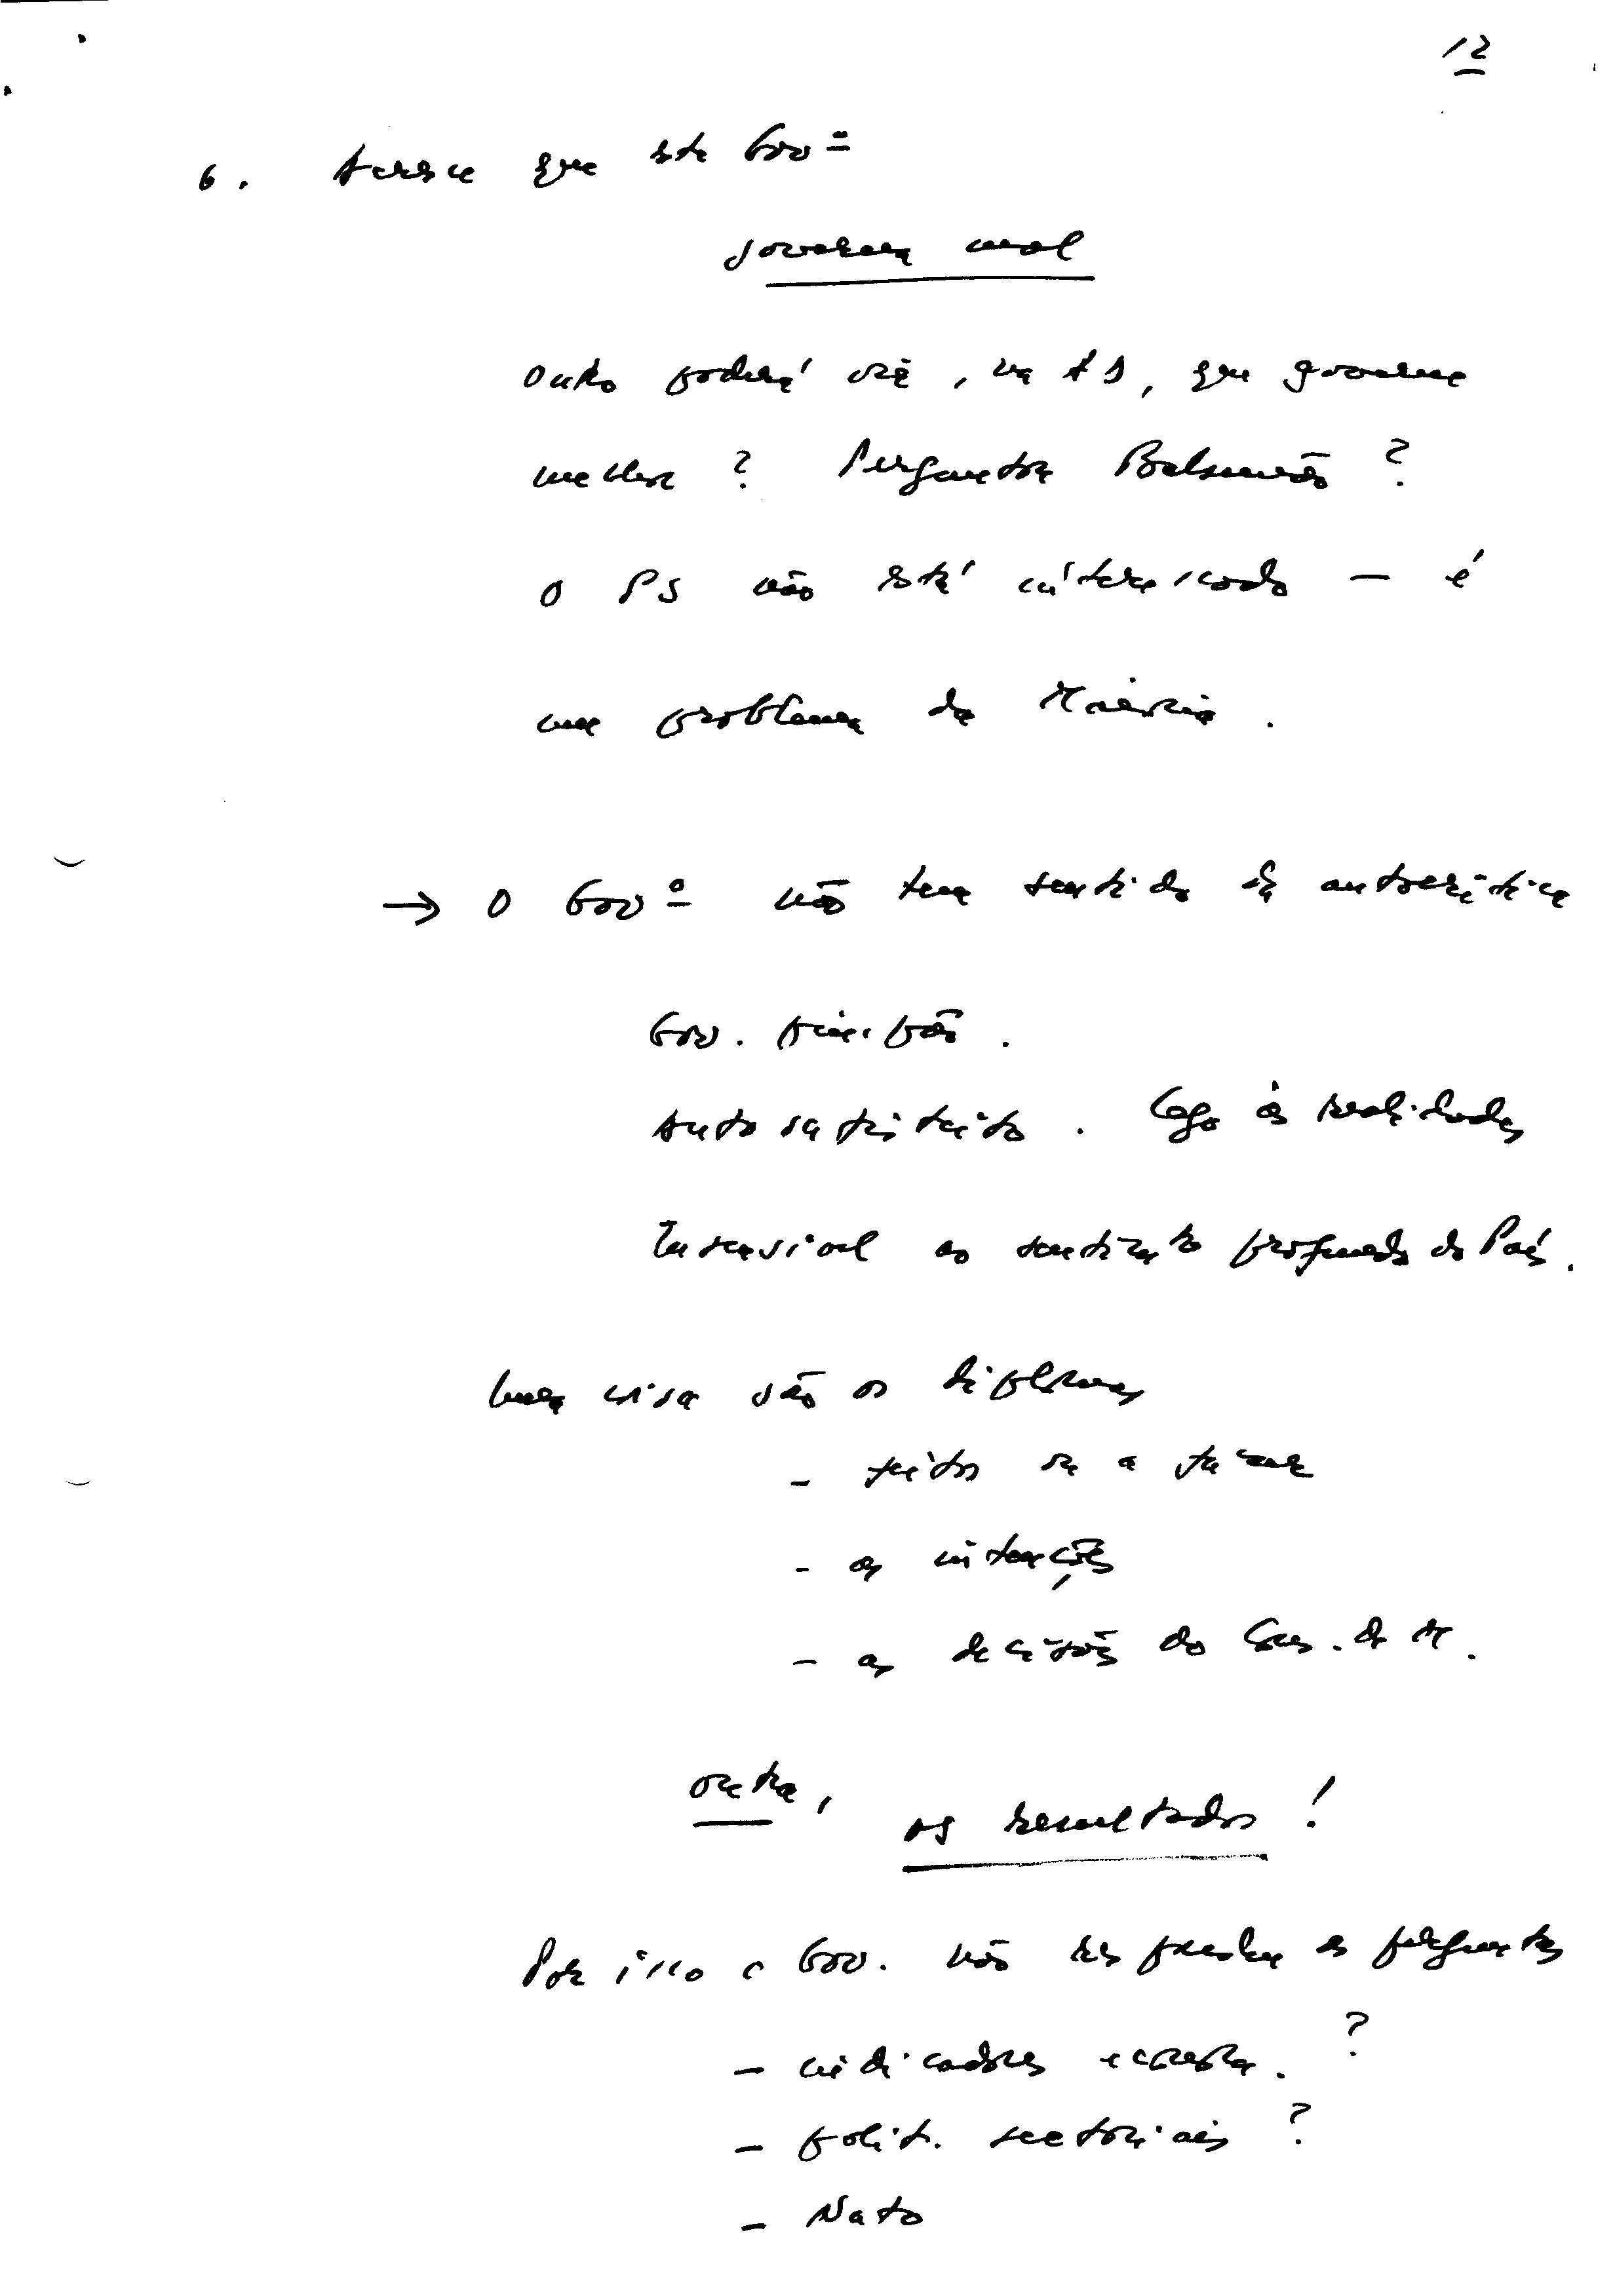 12
6. Acresce que este Govº
governa mal
Outro poderá vir, na AD, que governe
melhor? Perguntar Balsemão?
O PS não está interessado — é
um problema da Maioria.
→ O Govº não tem sentido da autocrítica
Gov.
Auto satisfeito. Cego às realidades
Insensível ao sentimento profundo do País.
Uma coisa são os diplomas
- feitos ou a fazer
- as intenções
- as decisões do Cons. de M.
outra, os resultados!
Por isso o Gov. não responde às perguntas
- indicadores econom.?
- polít. sectoriais?
- Nato